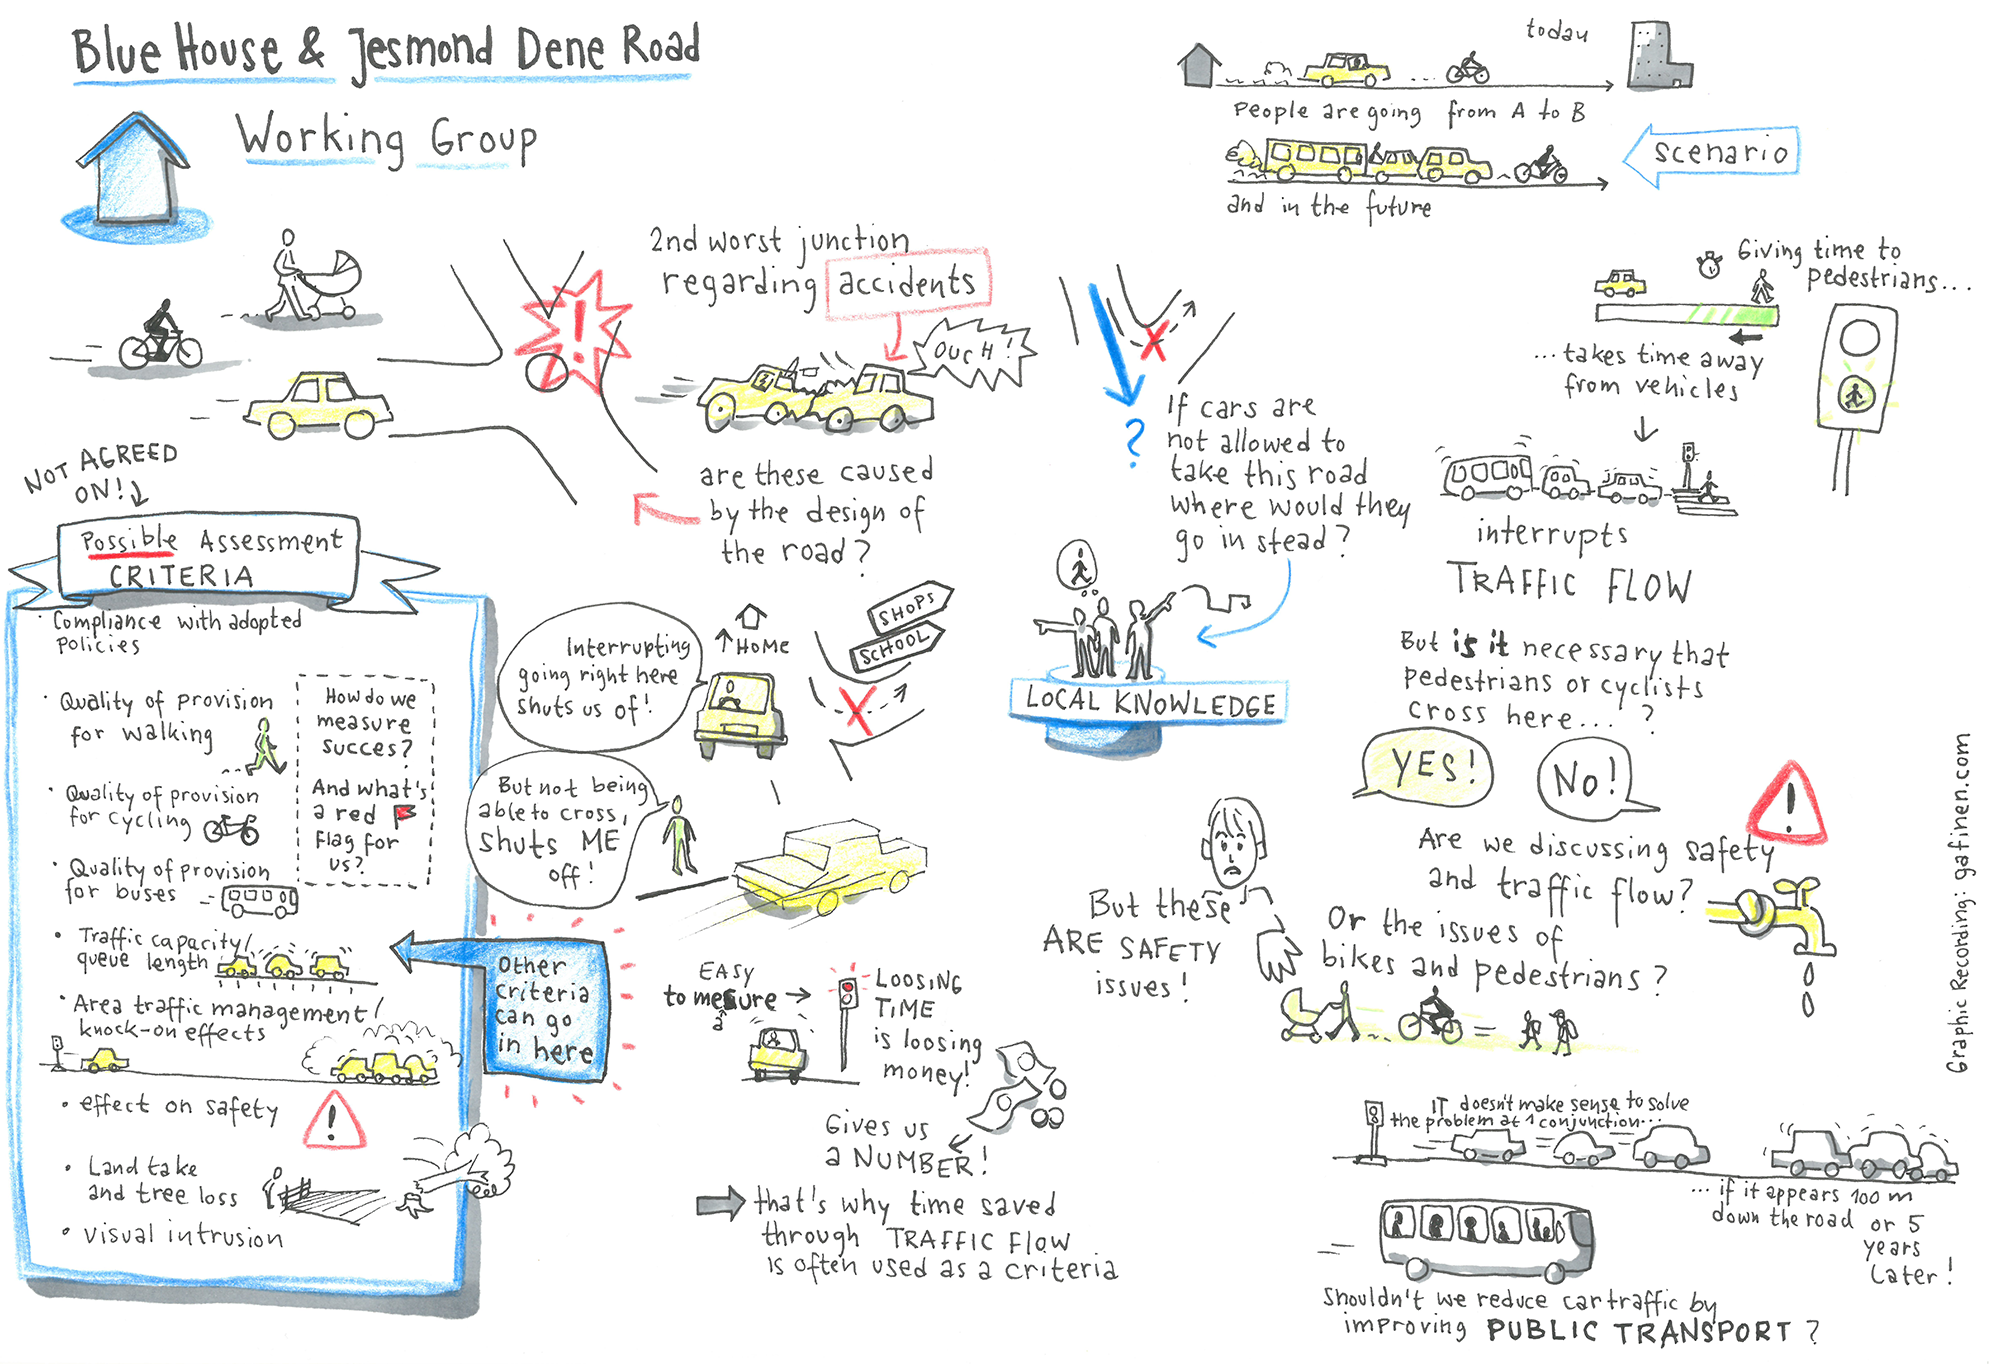 Blue House & Jesmond Dene Road
Working Group
today
People are going from A to B
scenario
and in the future
2nd worst junction
regarding accidents
OUCH!
are these caused
by the design of
the road?
?
If cars are
not allowed to
take this road
where would they
go in stead?
Giving time to
pedestrians...
...takes time away
from vehicles
interrupts
TRAFFIC FLOW
But is it necessary that
pedestrians or cyclists
cross here... ?
YES!
NO!
!
Are we discussing safety
and traffic flow?
Or the issues of
bikes and pedestrians?
But these
ARE SAFETY
issues!
NOT AGREED
ON!
Possible Assessment
CRITERIA
· Compliance with adopted
policies
· Quality of provision
for walking
· Quality of provision
for cycling
· Quality of provision
for buses
· Traffic capacity/
queue length
· Area traffic management/
knock-on effects
· effect on safety
!
· Land take
and tree loss
· visual intrusion
How do we
measure
succes?
And what's
a red
flag for
us?
Other
criteria
can go
in here
Interrupting
going right here
shuts us of!
HOME
SHOPS
SCHOOL
But not being
able to cross,
shuts ME
off!
LOCAL KNOWLEDGE
EASY
to mesure
a
LOOSING
TIME
is loosing
money!
Gives us
a NUMBER!
that's why time saved
through TRAFFIC FLOW
is often used as a criteria
IT doesn't make sense to solve
the problem at 1 conjunction...
...if it appears 100 m
down the road or 5
years
later!
Shouldn't we reduce car traffic by
improving PUBLIC TRANSPORT?
Graphic Recording: gafinen.com